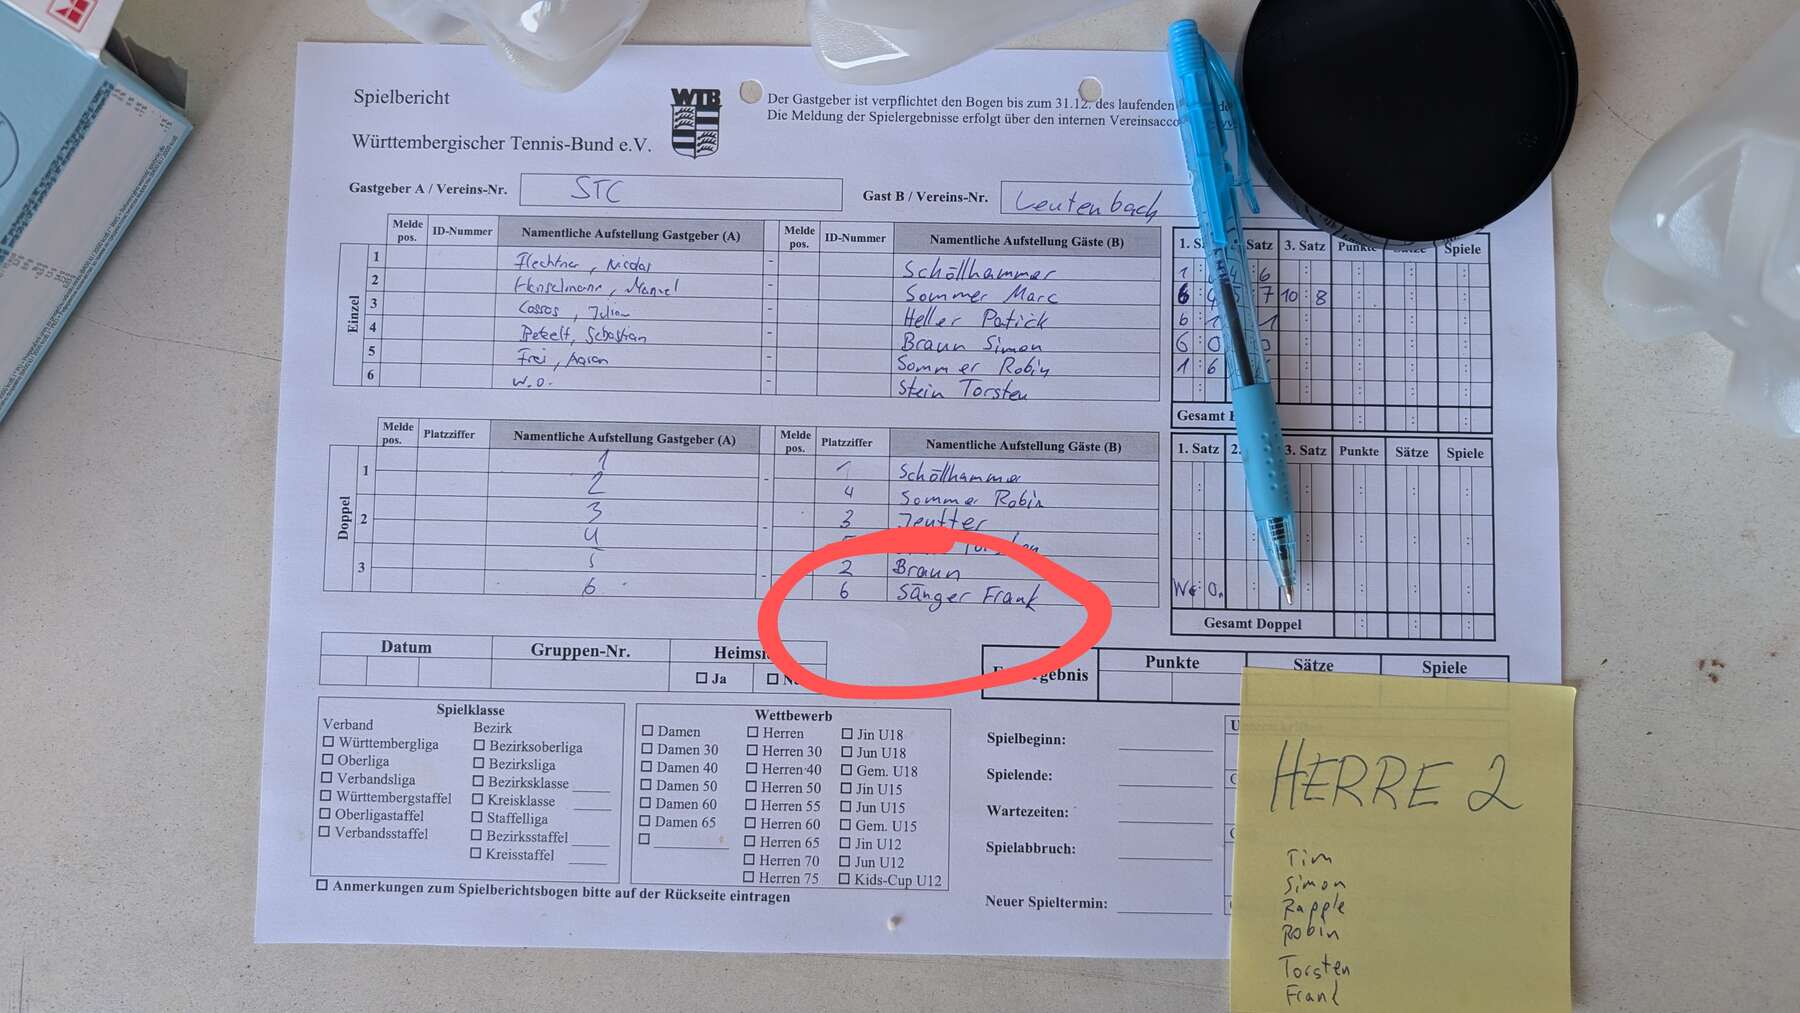 Spielbericht
WTB
Der Gastgeber ist verpflichtet den Bogen bis zum 31.12. des laufenden
Die Meldung der Spielergebnisse erfolgt über den internen
Württembergischer Tennis-Bund e.V.
Gastgeber A / Vereins-Nr. STC Gast B / Vereins-Nr. Leutenbach
Melde pos. ID-Nummer Namentliche Aufstellung Gastgeber (A) - Melde pos. ID-Nummer Namentliche Aufstellung Gäste (B) Satz 3. Satz Spiele
Einzel
1 Flechtner, Nicolai - Schöllhammer 1 : 6
2 Henselmann, Manuel - Sommer Marc 6 : 7 10 : 8
3 Cossos, Julian - Heller Patick 6 : 1 1
4 Petzelt, Sebastian - Braun Simon 6 : 0 0
5 Frei, Aaron - Sommer Robin 1 : 6
6 w.o. - Stein Torsten
Gesamt
Melde pos. Platzziffer Namentliche Aufstellung Gastgeber (A) Melde pos. Platzziffer Namentliche Aufstellung Gäste (B) 1. Satz 2. 3. Satz Punkte Sätze Spiele
Doppel
1 1 - 1 Schöllhammer
2 4 Sommer Robin
2 3 - 3 Jeutter
4
3 5 - 2 Braun
6 6 Sänger Frank W. O.
Gesamt Doppel
Datum Gruppen-Nr.
☐ Ja ☐
Punkte Sätze Spiele
Spielklasse
Verband Bezirk
☐ Württembergliga ☐ Bezirksoberliga
☐ Oberliga ☐ Bezirksliga
☐ Verbandsliga ☐ Bezirksklasse
☐ Württembergstaffel ☐ Kreisklasse
☐ Oberligastaffel ☐ Staffelliga
☐ Verbandsstaffel ☐ Bezirksstaffel
☐ Kreisstaffel
Wettbewerb
☐ Damen ☐ Herren ☐ Jin U18
☐ Damen 30 ☐ Herren 30 ☐ Jun U18
☐ Damen 40 ☐ Herren 40 ☐ Gem. U18
☐ Damen 50 ☐ Herren 50 ☐ Jin U15
☐ Damen 60 ☐ Herren 55 ☐ Jun U15
☐ Damen 65 ☐ Herren 60 ☐ Gem. U15
☐ ☐ Herren 65 ☐ Jin U12
☐ Herren 70 ☐ Jun U12
☐ Herren 75 ☐ Kids-Cup U12
☐ Anmerkungen zum Spielberichtsbogen bitte auf der Rückseite eintragen
Spielbeginn:
Spielende:
Wartezeiten:
Spielabbruch:
Neuer Spieltermin:
HERRE 2
Tim
Simon
Rapple
Robin
Torsten
Frank